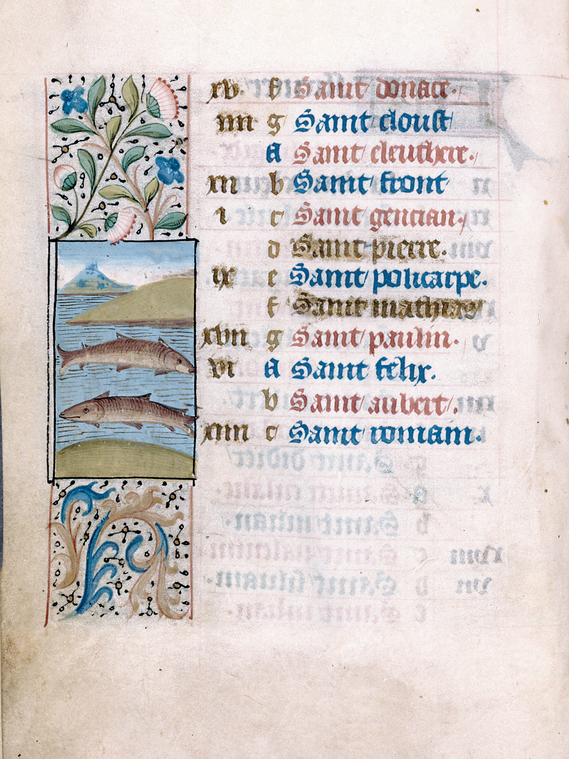 xv f Saint donace.
iiii g Saint cloust
A Saint eleuthere.
xii b Saint front
i c Saint gencian.
d Saint pierre.
ix e Saint policarpe.
f Saint mathias
xvii g Saint paulin.
vi A Saint felix.
b Saint aubert.
xiiii c Saint romain.